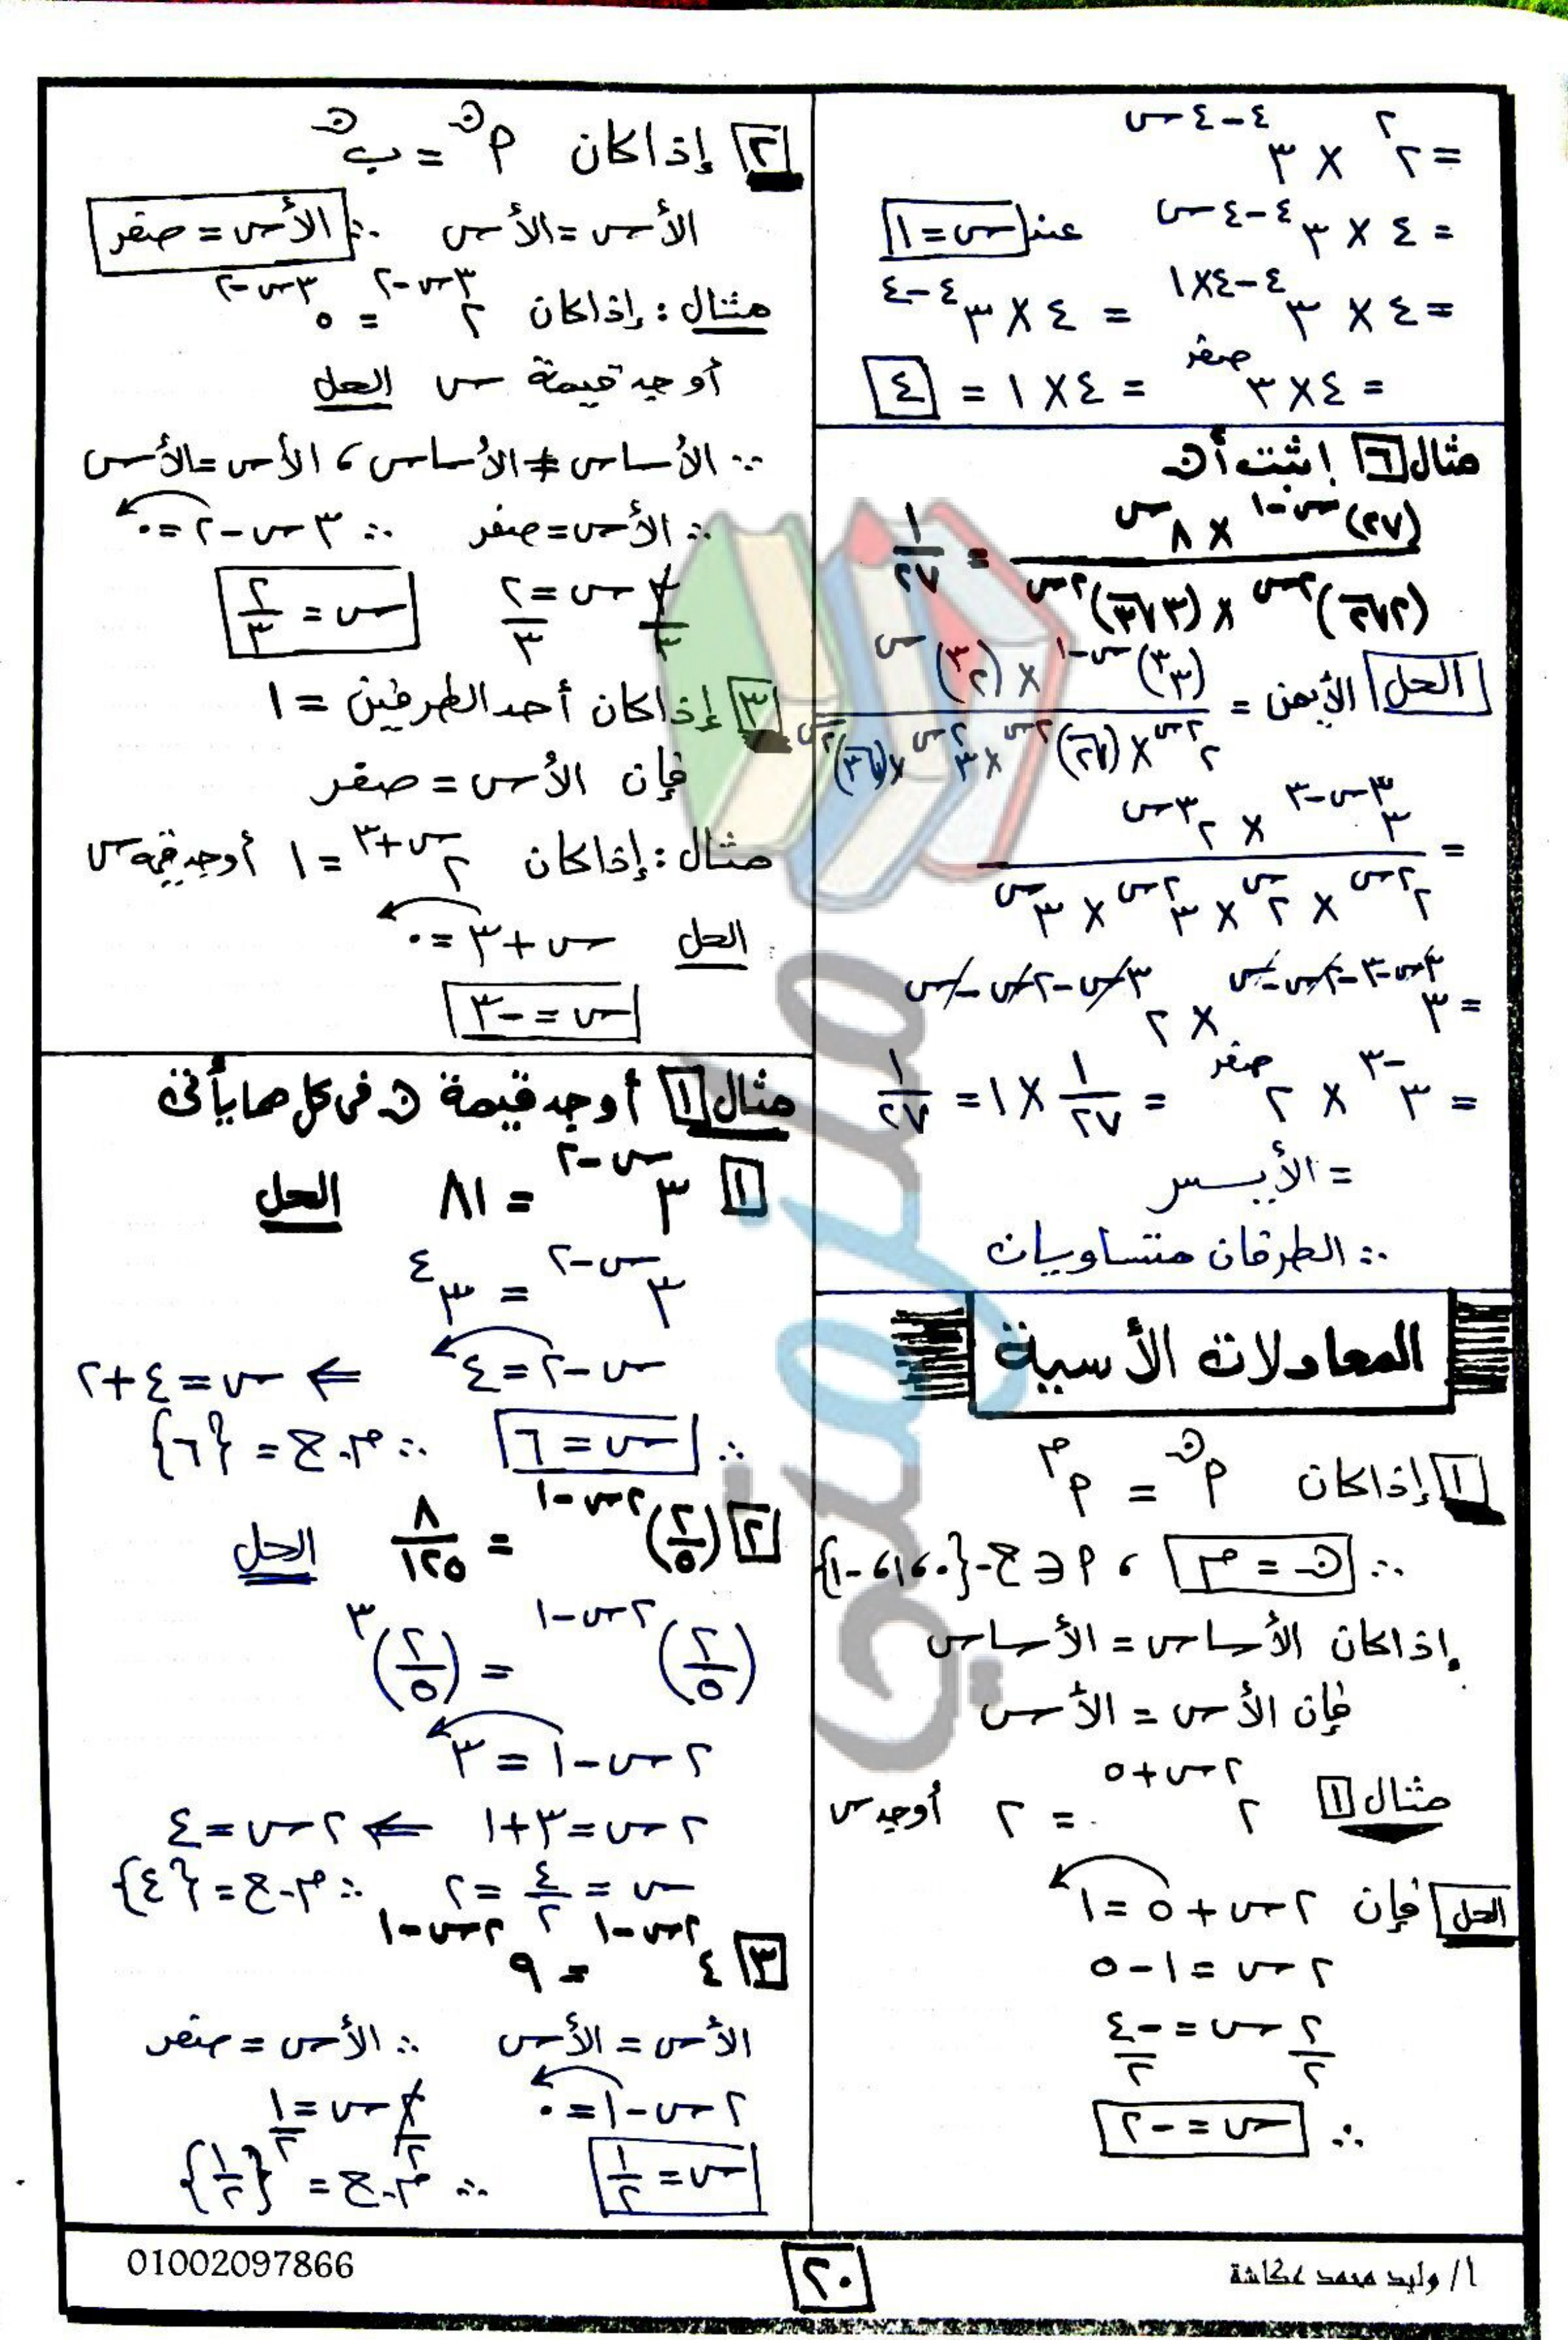 = ٢^٢ × ٣^(٤-٤س)
= ٤ × ٣^(٤-٤س) عند س=١
= ٤ × ٣^(٤-٤×١) = ٤ × ٣^(٤-٤)
= ٤×٣^صفر = ٤×١ = ٤
مثال ٦ إثبت أن
(٢٧)^(س-١) × ٨^س / (٢√٢)^(٢س) × (٣√٣)^(٢س) = ١/٢٧
الحل الأيمن = (٣^٣)^(س-١) × (٢^٣)^س / ٢^(٢س) × (√٢)^(٢س) × ٣^(٢س) × (√٣)^(٢س)
= ٣^(٣س-٣) × ٢^(٣س) / ٢^(٢س) × ٢^س × ٣^(٢س) × ٣^س
= ٣^(٣س-٣-٢س-س) × ٢^(٣س-٢س-س)
= ٣^(-٣) × ٢^صفر = ١/٢٧ × ١ = ١/٢٧
= الأيسر
∴ الطرفان متساويان
المعادلات الأسية
١ إذا كان م^ن = م^م
∴ ن = م ، م ∈ ح-{٠،١،-١}
إذا كان الأساس = الأساس
فإن الأس = الأس
مثال ١ ٢^(٢س+٥) = ٢ أوجد س
الحل فإن ٢س+٥=١
٢س=١-٥
٢/٢ س=-٤/٢
∴ س=-٢
٢ إذا كان م^ن = ب^ن
الأس=الأس ∴ الأس=صفر
مثال: إذا كان ٢^(٣س-٢) = ٥^(٣س-٢)
أوجد قيمة س الحل
∵ الأساس ≠ الأساس ، الأس=الأس
∴ الأس=صفر ∴ ٣س-٢=٠
٣س/٣=٢/٣ س=٢/٣
٣ إذا كان أحد الطرفين = ١
فإن الأس = صفر
مثال: إذا كان ٢^(س+٣) = ١ أوجد قيمة س
الحل س+٣=٠
س=-٣
مثال ١ أوجد قيمة ن فى كل مما يأتى
١ ٣^(س-٢) = ٨١ الحل
٣^(س-٢) = ٣^٤
س-٢=٤ ⇐ س=٤+٢
∴ س=٦ ∴ م.ح = {٦}
٢ (٢/٥)^(٢س-١) = ٨/١٢٥ الحل
(٢/٥)^(٢س-١) = (٢/٥)^٣
٢س-١=٣
٢س=٣+١ ⇐ ٢س=٤
س=٤/٢=٢ ∴ م.ح={٤}
٣ ٤^(٢س-١) = ٩^(٢س-١)
الأس=الأس ∴ الأس=صفر
٢س-١=٠ ٢س/٢=١/٢
س=١/٢ ∴ م.ح={١/٢}
أ/ وليد محمد عكاشة
٢٠
01002097866